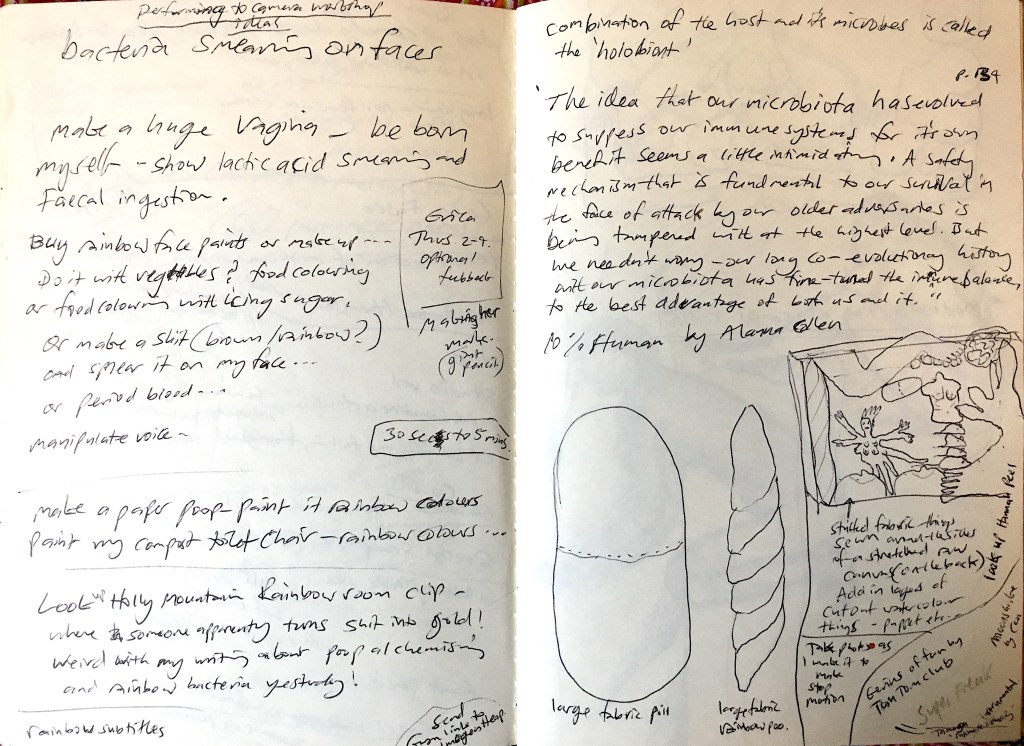 Performing to camera workshop
ideas
bacteria smearing on faces
make a huge vagina – be born
myself – show lactic acid smearing and
Faecal ingestion.
Buy rainbow face paints or make up ---
Do it with vegetables? food colouring
or food colouring with icing sugar.
Or make a shit (brown/rainbow?)
and smear it on my face ...
or period blood ...
manipulate voice –
Erica
Thurs 2-4.
optional
Making her
mark.
(giant
pencil)
30 secs to 5 mins.
make a paper poop – paint it rainbow colours
paint my compost toilet chair – rainbow colours ...
Look up Holly Mountain Rainbow room clip –
where someone apparenty turns shit into gold!
Weird with my writing about poop alchemising
and rainbow bacteria yesterday!
rainbow subtitles
Send
links to
combination of the host and its microbes is called
the 'holobiont'
p. 134
"The idea that our microbiota has evolved
to suppess our immune systems for it's own
benefit seems a little intimidating. A safety
mechanism that is fundmental to our survival in
the face of attack by our older adversaries is
being tampered with at the highest level. But
we needn't worry – our long co-evolutionary history
with our microbiota has fine-tuned the immune balance,
to the best advantage of both us and it."
10% Human by Alanna Collen
large fabric pill
large fabric
rainbow poo.
stuffed fabric things
sewn around the sides
of a stretched raw
canvas (on the back)
Add in layers of
cut out watercolour
things – puppet etc.
Look up Hannah Peel
Take photos as
I make it to
make
stop
motion
Genius of funk by
Tom Tom Club
Super Freak